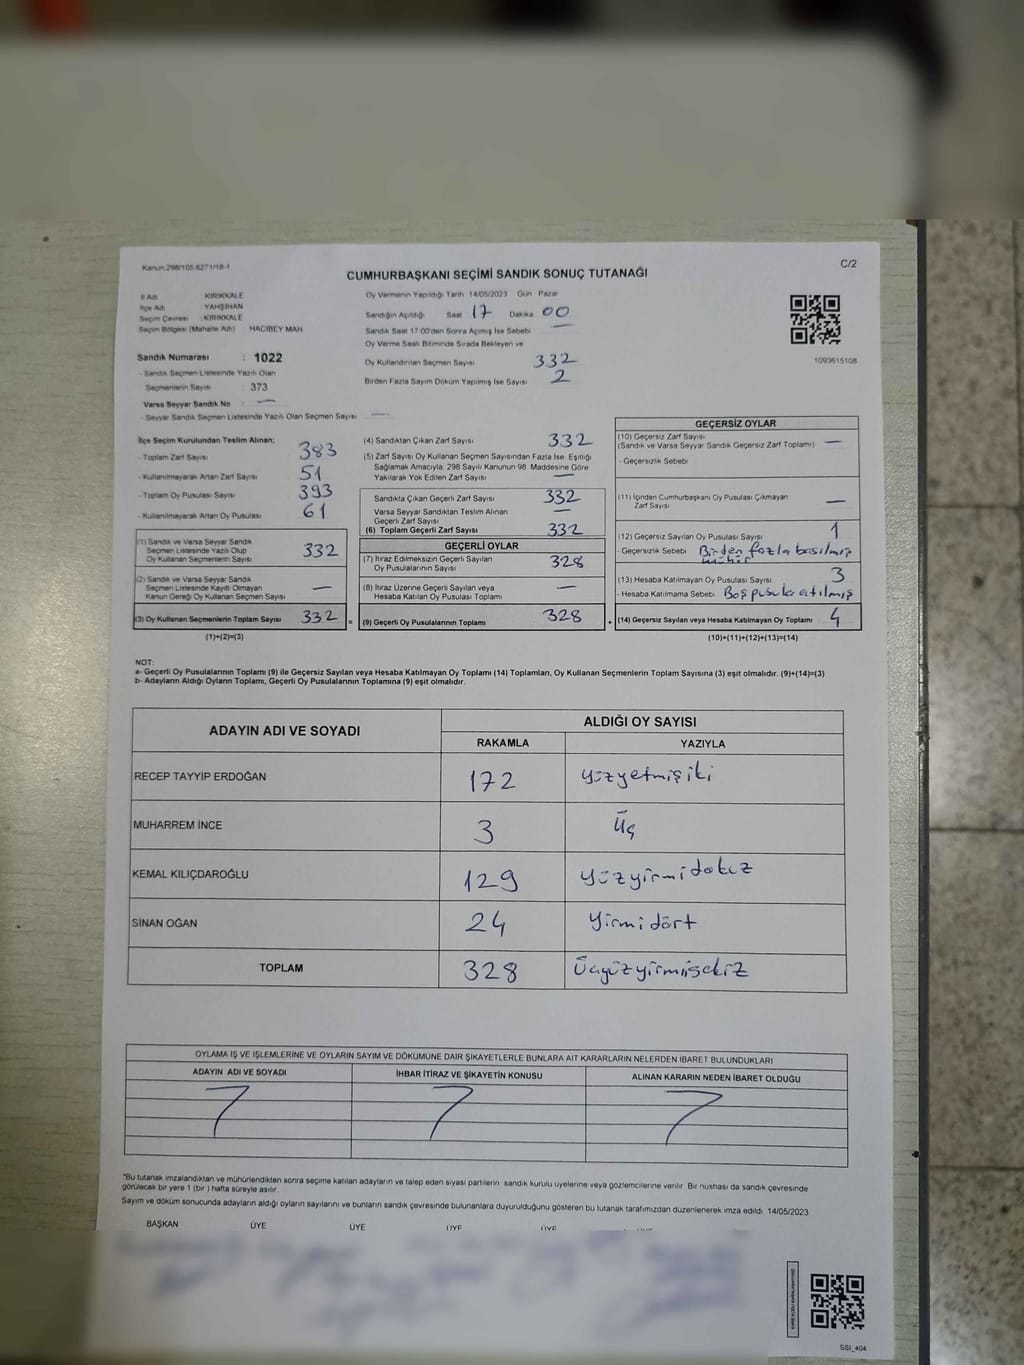 Kanun:298/105:6271/18-1
C/2
CUMHURBAŞKANI SEÇİMİ SANDIK SONUÇ TUTANAĞI
İl Adı : KIRIKKALE
İlçe Adı : YAHŞİHAN
Seçim Çevresi : KIRIKKALE
Seçim Bölgesi (Mahalle Adı) : HACIBEY MAH
Sandık Numarası : 1022
- Sandık Seçmen Listesinde Yazılı Olan
Seçmenlerin Sayısı : 373
Varsa Seyyar Sandık No : —
- Seyyar Sandık Seçmen Listesinde Yazılı Olan Seçmen Sayısı : —
Oy Vermenin Yapıldığı Tarih 14/05/2023 Gün Pazar
Sandığın Açıldığı Saat 17 Dakika 00
Sandık Saat 17.00'den Sonra Açımış İse Sebebi —
Oy Verme Saati Bitiminde Sırada Bekleyen ve
Oy Kullandırılan Seçmen Sayısı 332
Birden Fazla Sayım Döküm Yapılmış İse Sayısı 2
1093615108
İlçe Seçim Kurulundan Teslim Alınan;
- Toplam Zarf Sayısı : 383
- Kullanılmayarak Artan Zarf Sayısı : 51
- Toplam Oy Pusulası Sayısı : 393
- Kullanılmayarak Artan Oy Pusulası : 61
(1) Sandık ve Varsa Seyyar Sandık
Seçmen Listesinde Yazılı Olup
Oy Kullanan Seçmenlerin Sayısı 332
(2) Sandık ve Varsa Seyyar Sandık
Seçmen Listesinde Kayıtlı Olmayan
Kanun Gereği Oy Kullanan Seçmen Sayısı —
(3) Oy Kullanan Seçmenlerin Toplam Sayısı 332 =
(1)+(2)=(3)
(4) Sandıktan Çıkan Zarf Sayısı 332
(5) Zarf Sayısı Oy Kullanan Seçmen Sayısından Fazla İse, Eşitliği
Sağlamak Amacıyla, 298 Sayılı Kanunun 98. Maddesine Göre
Yakılarak Yok Edilen Zarf Sayısı —
Sandıkta Çıkan Geçerli Zarf Sayısı 332
Varsa Seyyar Sandıktan Teslim Alınan
Geçerli Zarf Sayısı —
(6) Toplam Geçerli Zarf Sayısı 332
GEÇERLİ OYLAR
(7) İtiraz Edilmeksizin Geçerli Sayılan
Oy Pusulalarının Sayısı 328
(8) İtiraz Üzerine Geçerli Sayılan veya
Hesaba Katılan Oy Pusulaları Toplamı —
(9) Geçerli Oy Pusulalarının Toplamı 328 +
GEÇERSİZ OYLAR
(10) Geçersiz Zarf Sayısı
(Sandık ve Varsa Seyyar Sandık Geçersiz Zarf Toplamı) —
- Geçersizlik Sebebi
(11) İçinden Cumhurbaşkanı Oy Pusulası Çıkmayan
Zarf Sayısı —
(12) Geçersiz Sayılan Oy Pusulası Sayısı 1
- Geçersizlik Sebebi Birden fazla basılmış
mühür
(13) Hesaba Katılmayan Oy Pusulası Sayısı 3
- Hesaba Katılmama Sebebi Boş pusula atılmış
(14) Geçersiz Sayılan veya Hesaba Katılmayan Oy Toplamı 4
(10)+(11)+(12)+(13)=(14)
NOT:
a- Geçerli Oy Pusulalarının Toplamı (9) ile Geçersiz Sayılan veya Hesaba Katılmayan Oy Toplamı (14) Toplamları, Oy Kullanan Seçmenlerin Toplam Sayısına (3) eşit olmalıdır. (9)+(14)=(3)
b- Adayların Aldığı Oyların Toplamı, Geçerli Oy Pusulalarının Toplamına (9) eşit olmalıdır.
ADAYIN ADI VE SOYADI ALDIĞI OY SAYISI
RAKAMLA YAZIYLA
RECEP TAYYİP ERDOĞAN 172 Yüzyetmişiki
MUHARREM İNCE 3 Üç
KEMAL KILIÇDAROĞLU 129 Yüzyirmidokuz
SİNAN OĞAN 24 Yirmidört
TOPLAM 328 Üçyüzyirmisekiz
OYLAMA İŞ VE İŞLEMLERİNE VE OYLARIN SAYIM VE DÖKÜMÜNE DAİR ŞİKAYETLERLE BUNLARA AİT KARARLARIN NELERDEN İBARET BULUNDUKLARI
ADAYIN ADI VE SOYADI İHBAR İTİRAZ VE ŞİKAYETİN KONUSU ALINAN KARARIN NEDEN İBARET OLDUĞU
*Bu tutanak imzalandıktan ve mühürlendikten sonra seçime katılan adayların ve talep eden siyasi partilerin sandık kurulu üyelerine veya gözlemcilerine verilir. Bir nüshası da sandık çevresinde
görülecek bir yere 1 (bir ) hafta süreyle asılır.
Sayım ve döküm sonucunda adayların aldığı oyların sayılarını ve bunların sandık çevresinde bulunanlara duyurulduğunu gösteren bu tutanak tarafımızdan düzenlenerek imza edildi. 14/05/2023
BAŞKAN ÜYE ÜYE ÜYE ÜYE
SSI_404